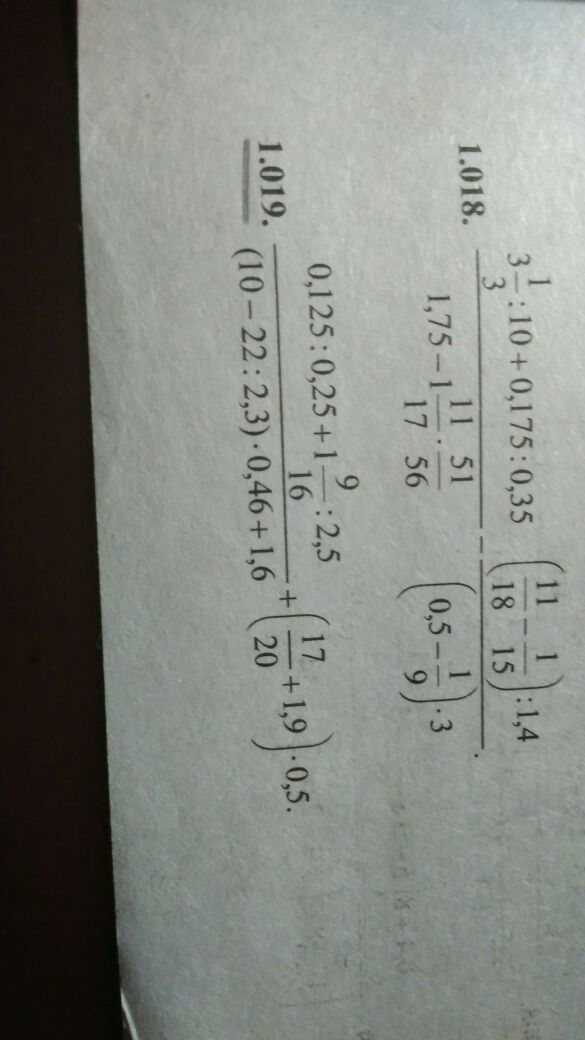 1.018. (3 1/3 : 10 + 0,175 : 0,35) / (1,75 − 1 11/17 · 51/56) − ((11/18 − 1/15) : 1,4) / ((0,5 − 1/9) · 3).
1.019. (0,125 : 0,25 + 1 9/16 : 2,5) / ((10 − 22 : 2,3) · 0,46 + 1,6) + (17/20 + 1,9) · 0,5.